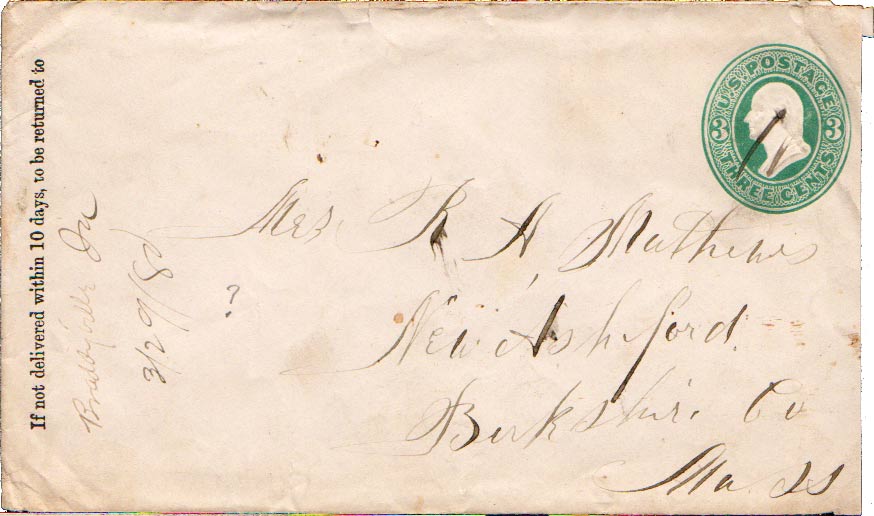 If not delivered within 10 days, to be returned to
Ia
3/29/80
?
U.S. POSTAGE
3 3
THREE CENTS
Mrs. R A Mathews
New Ashford.
Berkshire Co
Mass